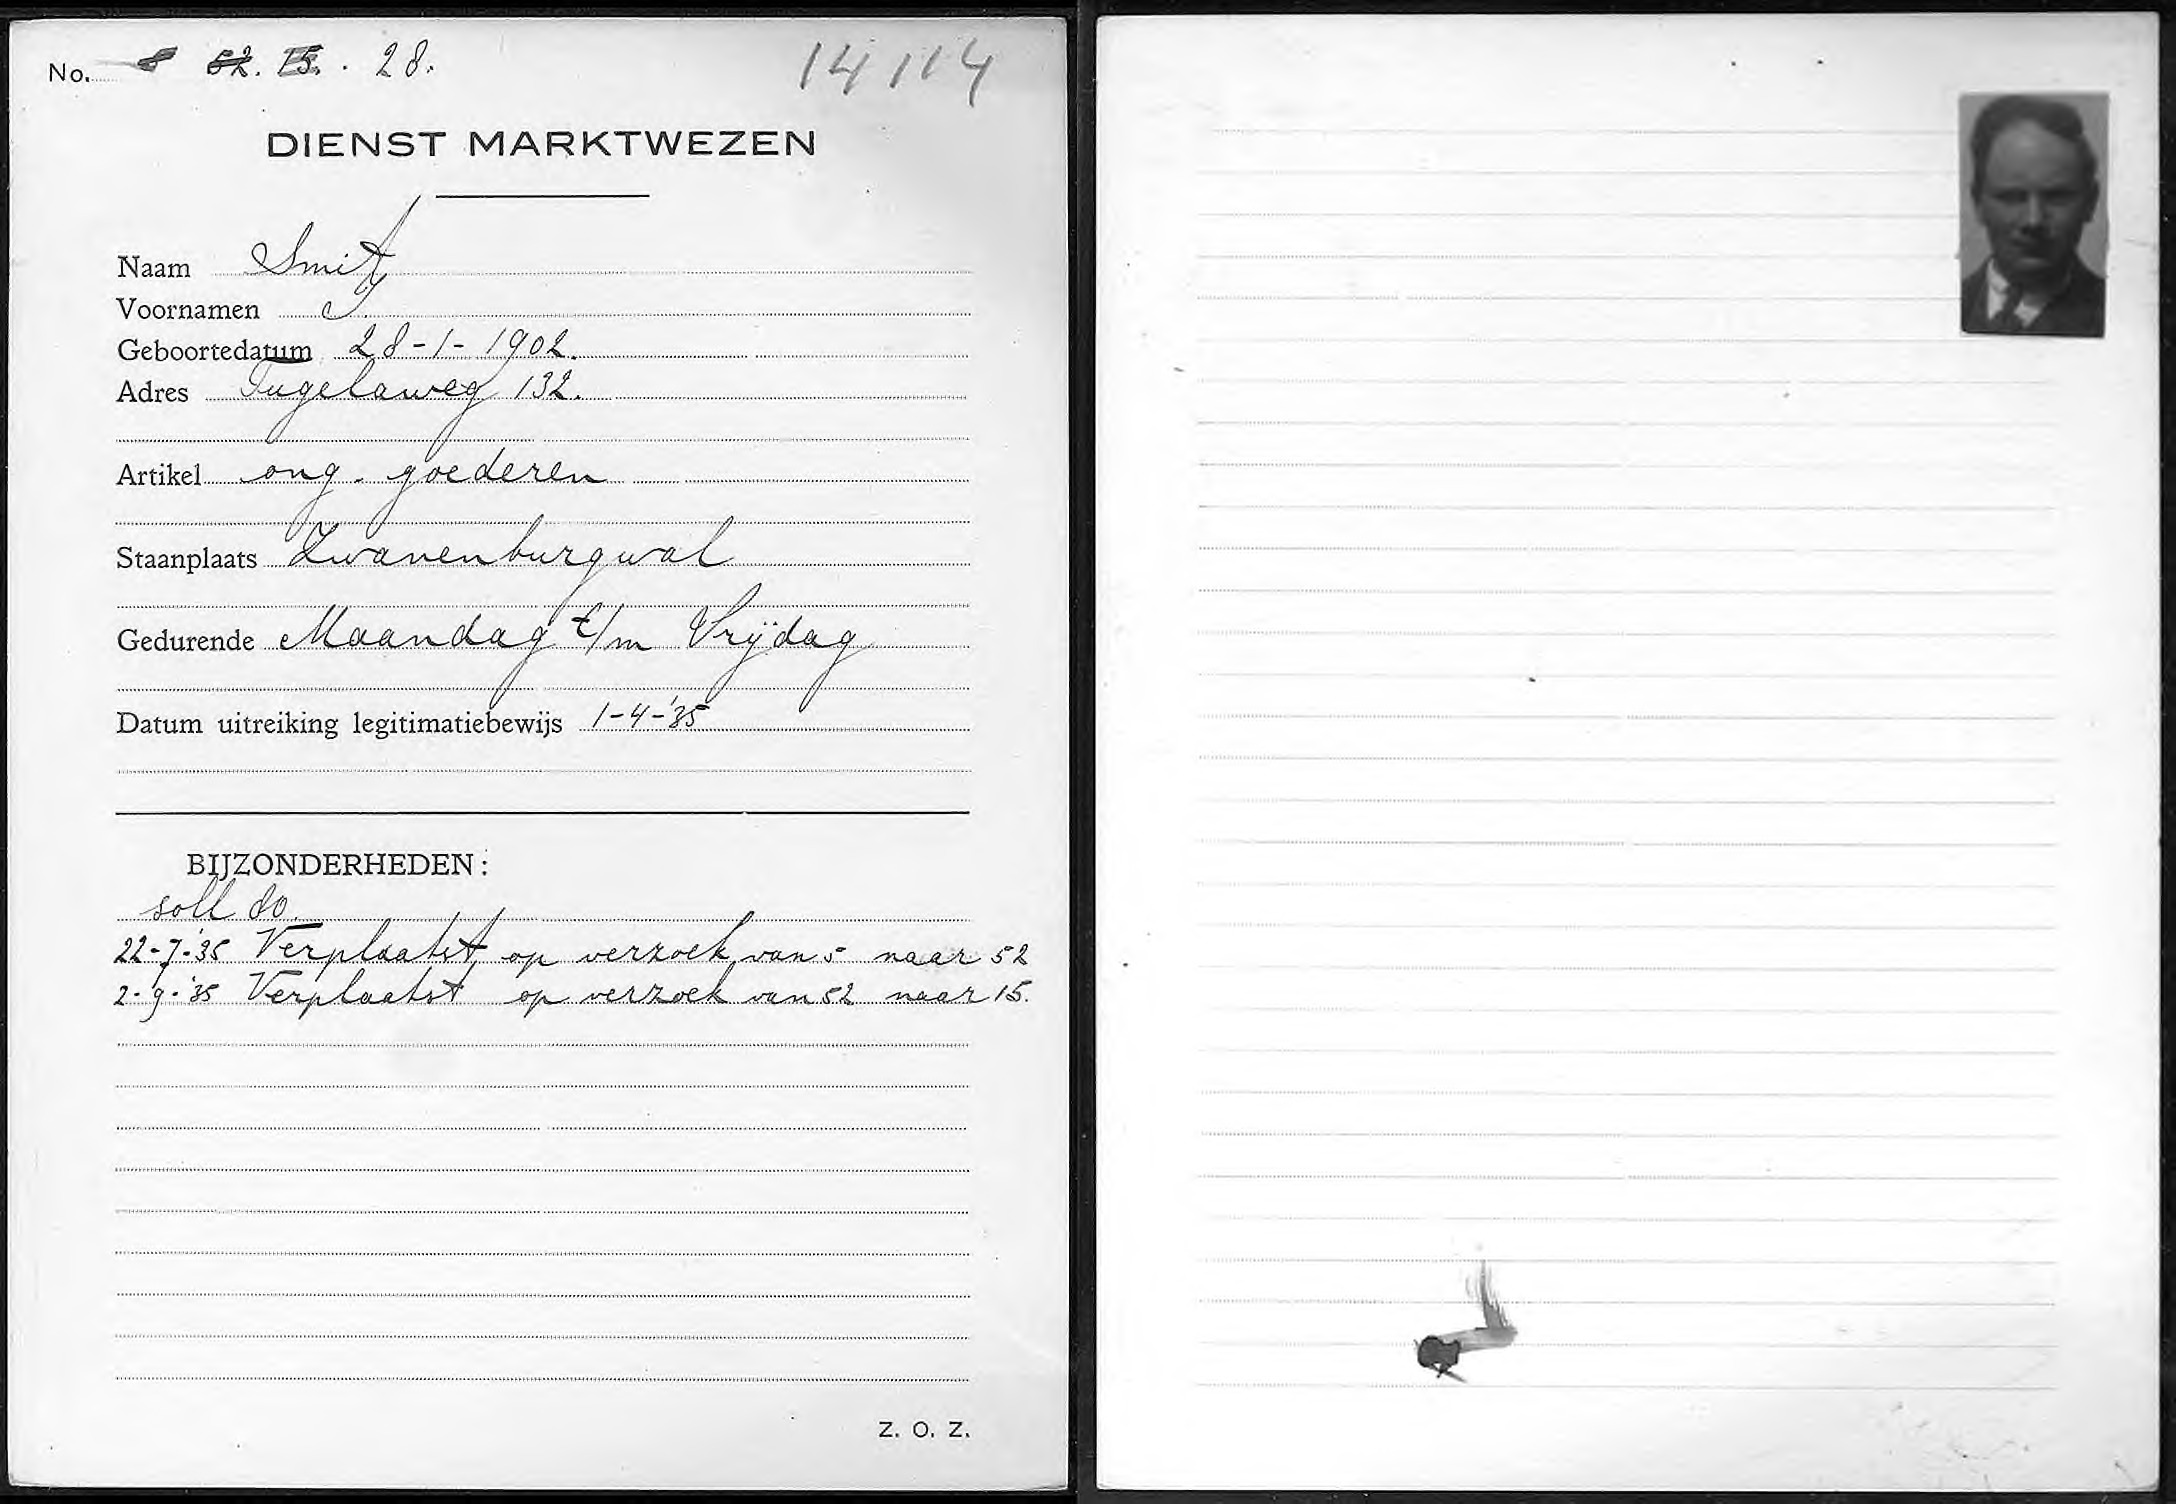 No. 5 52. 15. . 28.
14114
DIENST MARKTWEZEN
Naam Smit
Voornamen J.
Geboortedatum 28-1-1902.
Adres Tugelaweg 132.
Artikel ong. goederen
Staanplaats Zwanenburgwal
Gedurende Maandag t/m Vrijdag
Datum uitreiking legitimatiebewijs 1-4-'35
BIJZONDERHEDEN:
soll 80.
22-7-'35 Verplaatst op verzoek van 5 naar 52
2-9-'35 Verplaatst op verzoek van 52 naar 15.
Z. O. Z.